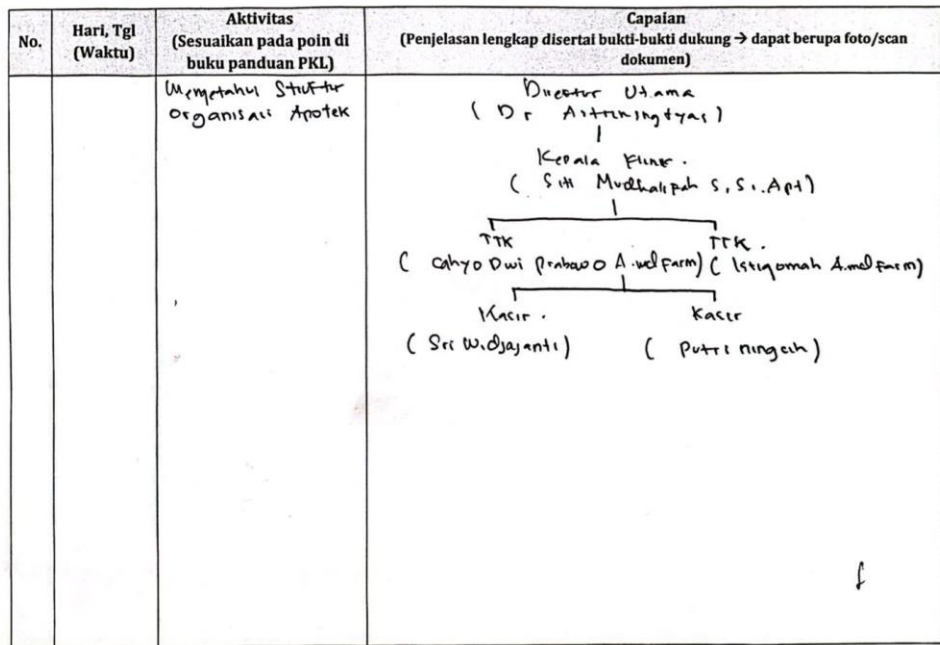 No.
Hari, Tgl
(Waktu)
Aktivitas
(Sesuaikan pada poin di
buku panduan PKL)
Capaian
(Penjelasan lengkap disertai bukti-bukti dukung → dapat berupa foto/scan
dokumen)
Mengetahui Struktur
Organisasi Apotek
Direktur Utama
( Dr Astriningtyas )
Kepala Klinik.
( Siti Mudhalipah S, Si. Apt)
TTK TTK.
( Cahyo Dwi Prabowo A.md Farm) ( Istiqomah A.md Farm)
Kasir. Kasir
( Sri Widjajanti) ( Putri ningsih )